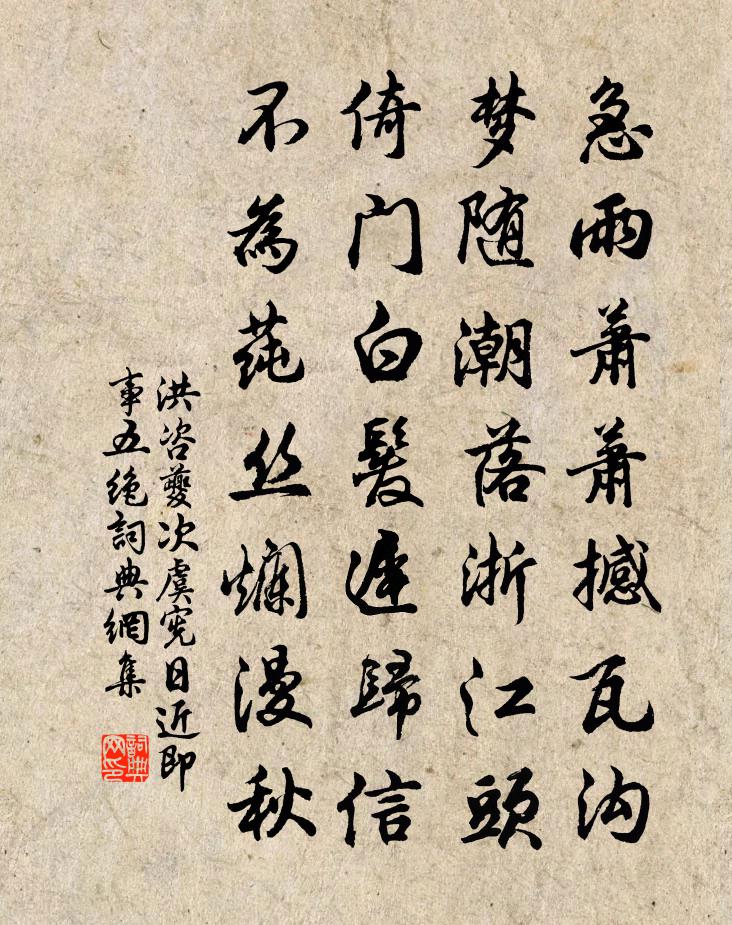 急雨萧萧撼瓦沟
梦随潮落浙江头
倚门白髮遲歸信
不為莼丝爛漫秋
洪咨夔次虞宪日近即
事五绝詞典網集
詞典网印